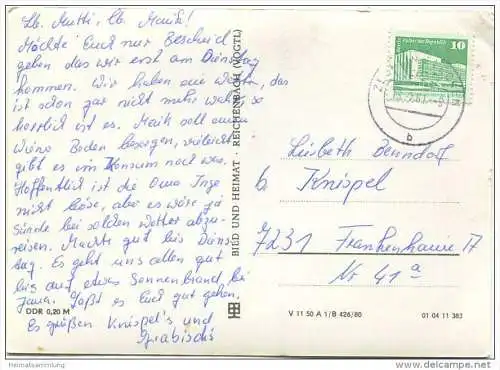 Lb. Mutti, lb. Maik!
Möchte Euch nur Bescheid
geben das wir erst am Dienstag
kommen. Wir haben ein Wetter, das
ist schon gar nicht mehr wahr, so
herrlich ist es. Maik soll
Boden besorgen, vieleicht
gibt es im Konsum noch was.
Hoffentlich ist die Oma Inge
nicht böse, aber es wäre ja
Sünde bei solden Wetter abzu-
reisen. Machts gut bis Diens-
tag. Es geht uns allen gut
bis auf etwas Sonnenbrand bei
Jana. Laßt es Euch gut gehen,
Es grüßen Knispel's und
Grabisch's
DDR 0,20 M
BILD UND HEIMAT · REICHENBACH (VOGTL)
10
b
Lisbeth Benndorf
b Knispel
7231 Frankenhain
Nr 41a
V 11 50 A 1/B 426/80
01 04 11 382
Heimatsammlung
www.delcampe.net